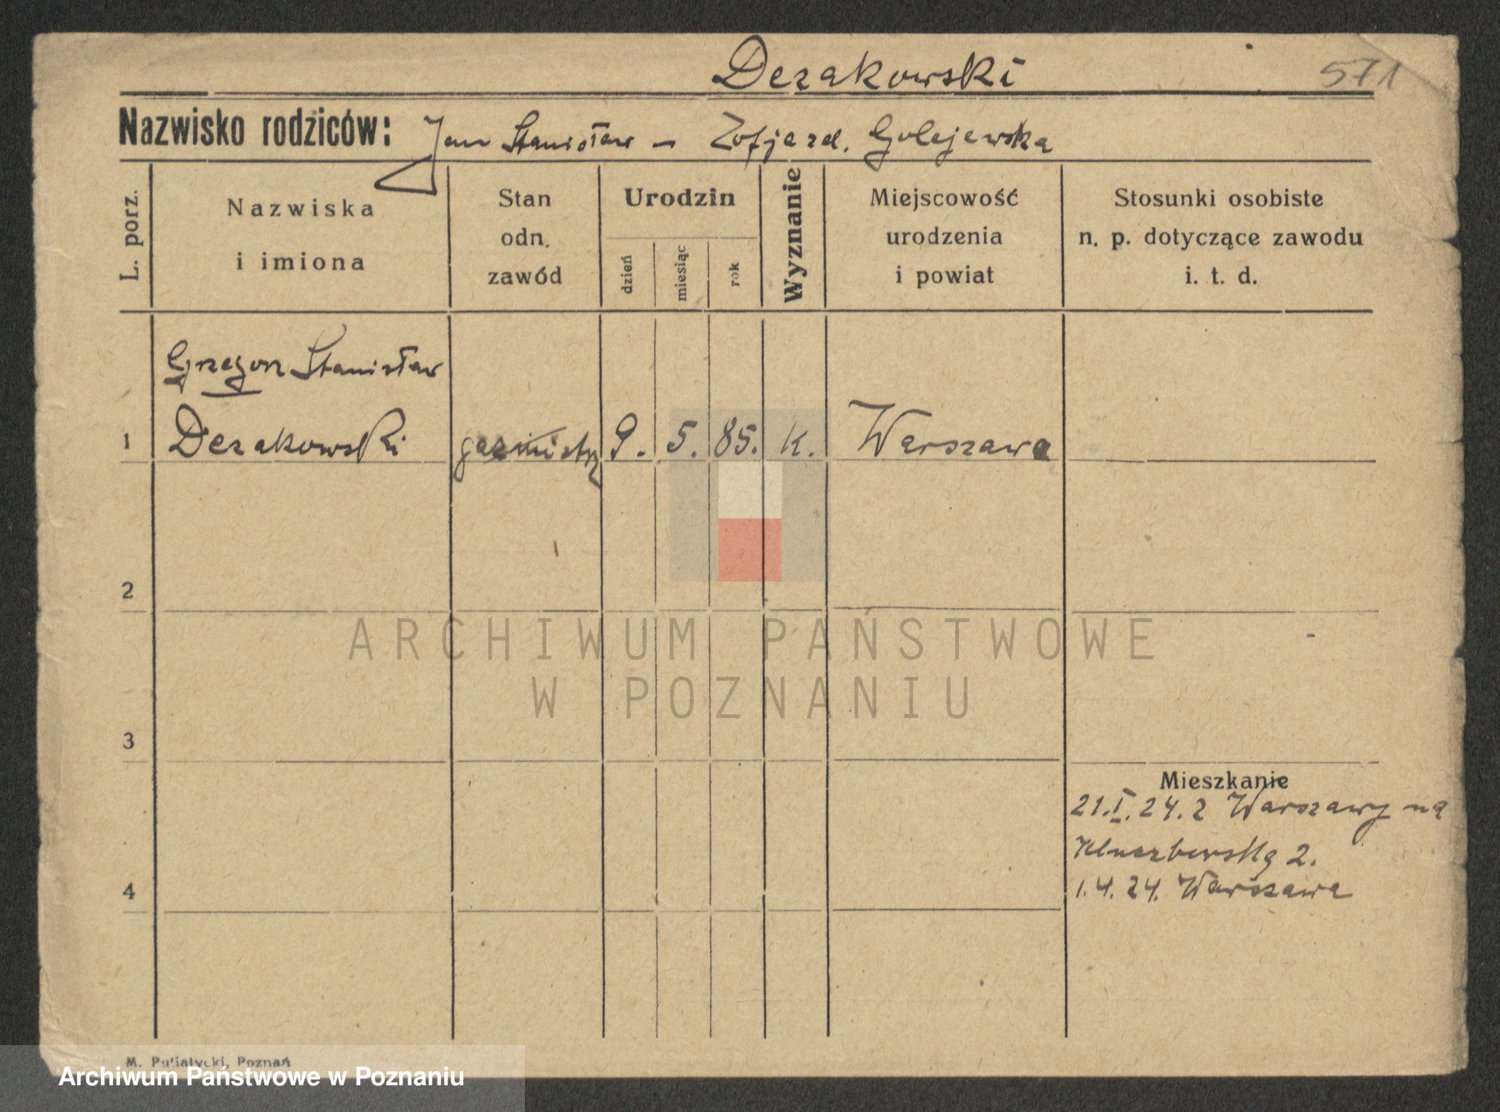 Derakowski
571
Nazwisko rodziców: Jan Stanisław – Zofja zd. Golejewska
L. porz.
Nazwiska
i imiona
Stan
odn.
zawód
Urodzin
dzień
miesiąc
rok
Wyznanie
Miejscowość
urodzenia
i powiat
Stosunki osobiste
n. p. dotyczące zawodu
i. t. d.
Grzegorz Stanisław
1 Derakowski 9. 5. 85. k. Warszawa
2
3
4
Mieszkanie
21.I.24. z Warszawy na
2.
1.4.24. Warszawa
ARCHIWUM PAŃSTWOWE
W POZNANIU
M. Putiatycki, Poznań
Archiwum Państwowe w Poznaniu